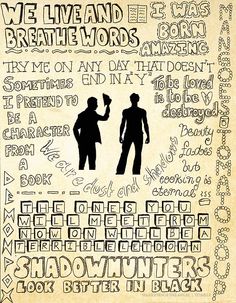 WE LIVE AND
BREATHE WORDS
I WAS
BORN
AMAZING
"TRY ME ON ANY DAY THAT DOESN'T
END IN A Y"
SOMETIMES
I PRETEND TO
BE A
CHARACTER
FROM
A BOOK
To be loved
is to be
destroyed
Beauty
fades
but
cooking is
eternal...
We are dust and shadows
DEMON
THE ONES YOU
WILL MEET FROM
NOW ON WILL BE A
TERRIBLE LETDOWN
SHADOWHUNTERS
LOOK BETTER IN BLACK
MANGOES
SOUP